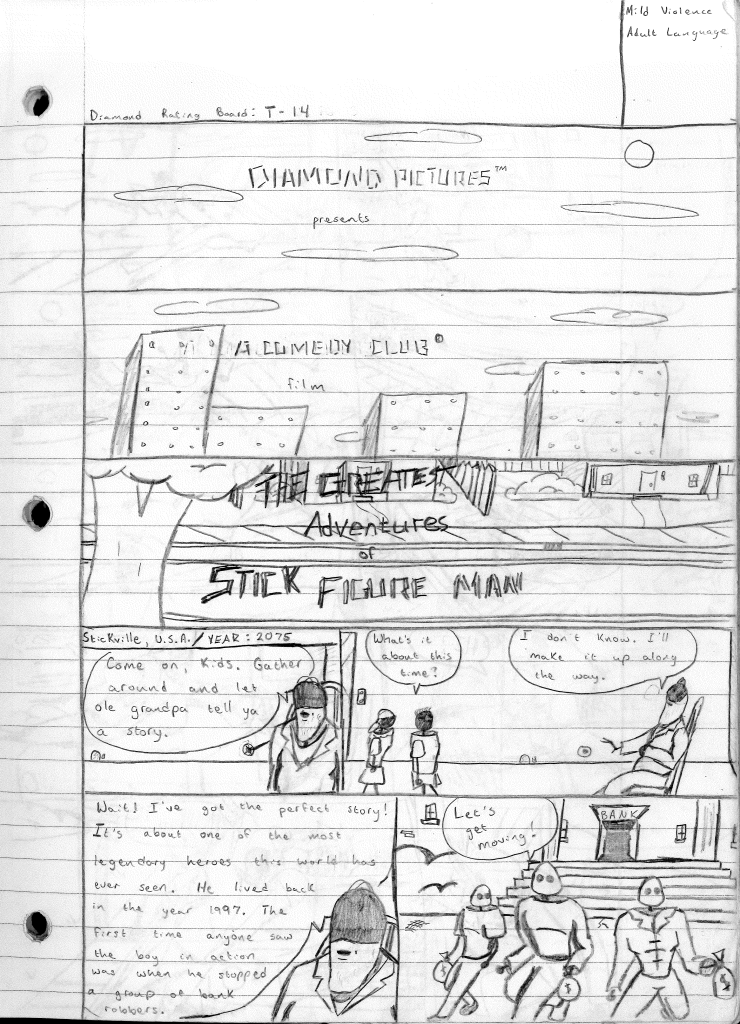 Mild Violence
Adult Language
Diamond Rating Board: T-14
DIAMOND PICTURES™
presents
A COMEDY CLUB®
film
THE GREATEST
Adventures
of
STICK FIGURE MAN
Stickville, U.S.A./YEAR: 2075
Come on, Kids. Gather
around and let
ole grandpa tell ya
a story.
What's it
about this
time?
I don't know. I'll
make it up along
the way.
Wait! I've got the perfect story!
It's about one of the most
legendary heroes this world has
ever seen. He lived back
in the year 1997. The
first time anyone saw
the boy in action
was when he stopped
a group of bank
robbers.
Let's
get
moving!
BANK
$
$